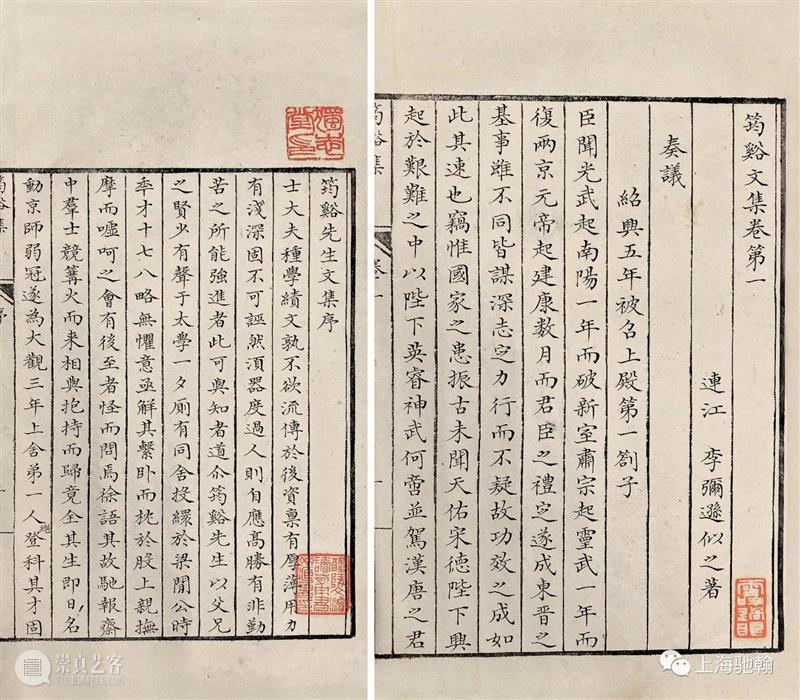 筠谿先生文集序
士大夫種學績文孰不欲流傳於後資稟有厚薄用力
有淺深固不可誣然湏器度過人則自應髙勝有非勤
苦之所能強進者此可與知者道尒筠谿先生以父兄
之賢少有聲于太學一夕廁有同舍投繯於梁閒公時
年才十七八略無懼意亟解其繫卧而枕於股上親撫
摩而噓呵之會有後至者怪而問焉徐語其故馳報齋
中羣士競篝火而来相與抱持而歸竟全其生即日名
動京師弱冠遂為大觀三年上舍第一人登科其才固
筠谿集 序
筠谿文集卷第一
連江 李彌遜似之著
奏議
紹興五年被召上殿第一劄子
臣聞光武起南陽一年而破新室肅宗起靈武一年而
復兩京元帝起建康数月而君臣之禮定遂成東晋之
基事雖不同皆謀深志定力行而不疑故功效之成如
此其速也竊惟國家之患振古未聞天佑宋德陛下興
起於艱難之中以陛下英睿神武何啻並駕漢唐之君
筠谿集 卷一
崇真艺客
上海驰翰